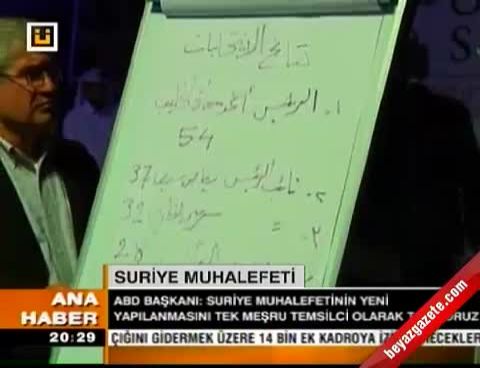 نتائج الانتخابات
١. الرئيس أحمد معاذ الخطيب
54
٢. نائب الرئيس رياض سيف 37
٣. = سهير الأتاسي 32
28
SURİYE MUHALEFETİ
ANA HABER
ABD BAŞKANI: SURİYE MUHALEFETİNİN YENİ
YAPILANMASINI TEK MEŞRU TEMSİLCİ OLARAK
20:29
ÇIĞINI GİDERMEK ÜZERE 14 BİN EK KADROYA
beyazgazete.com